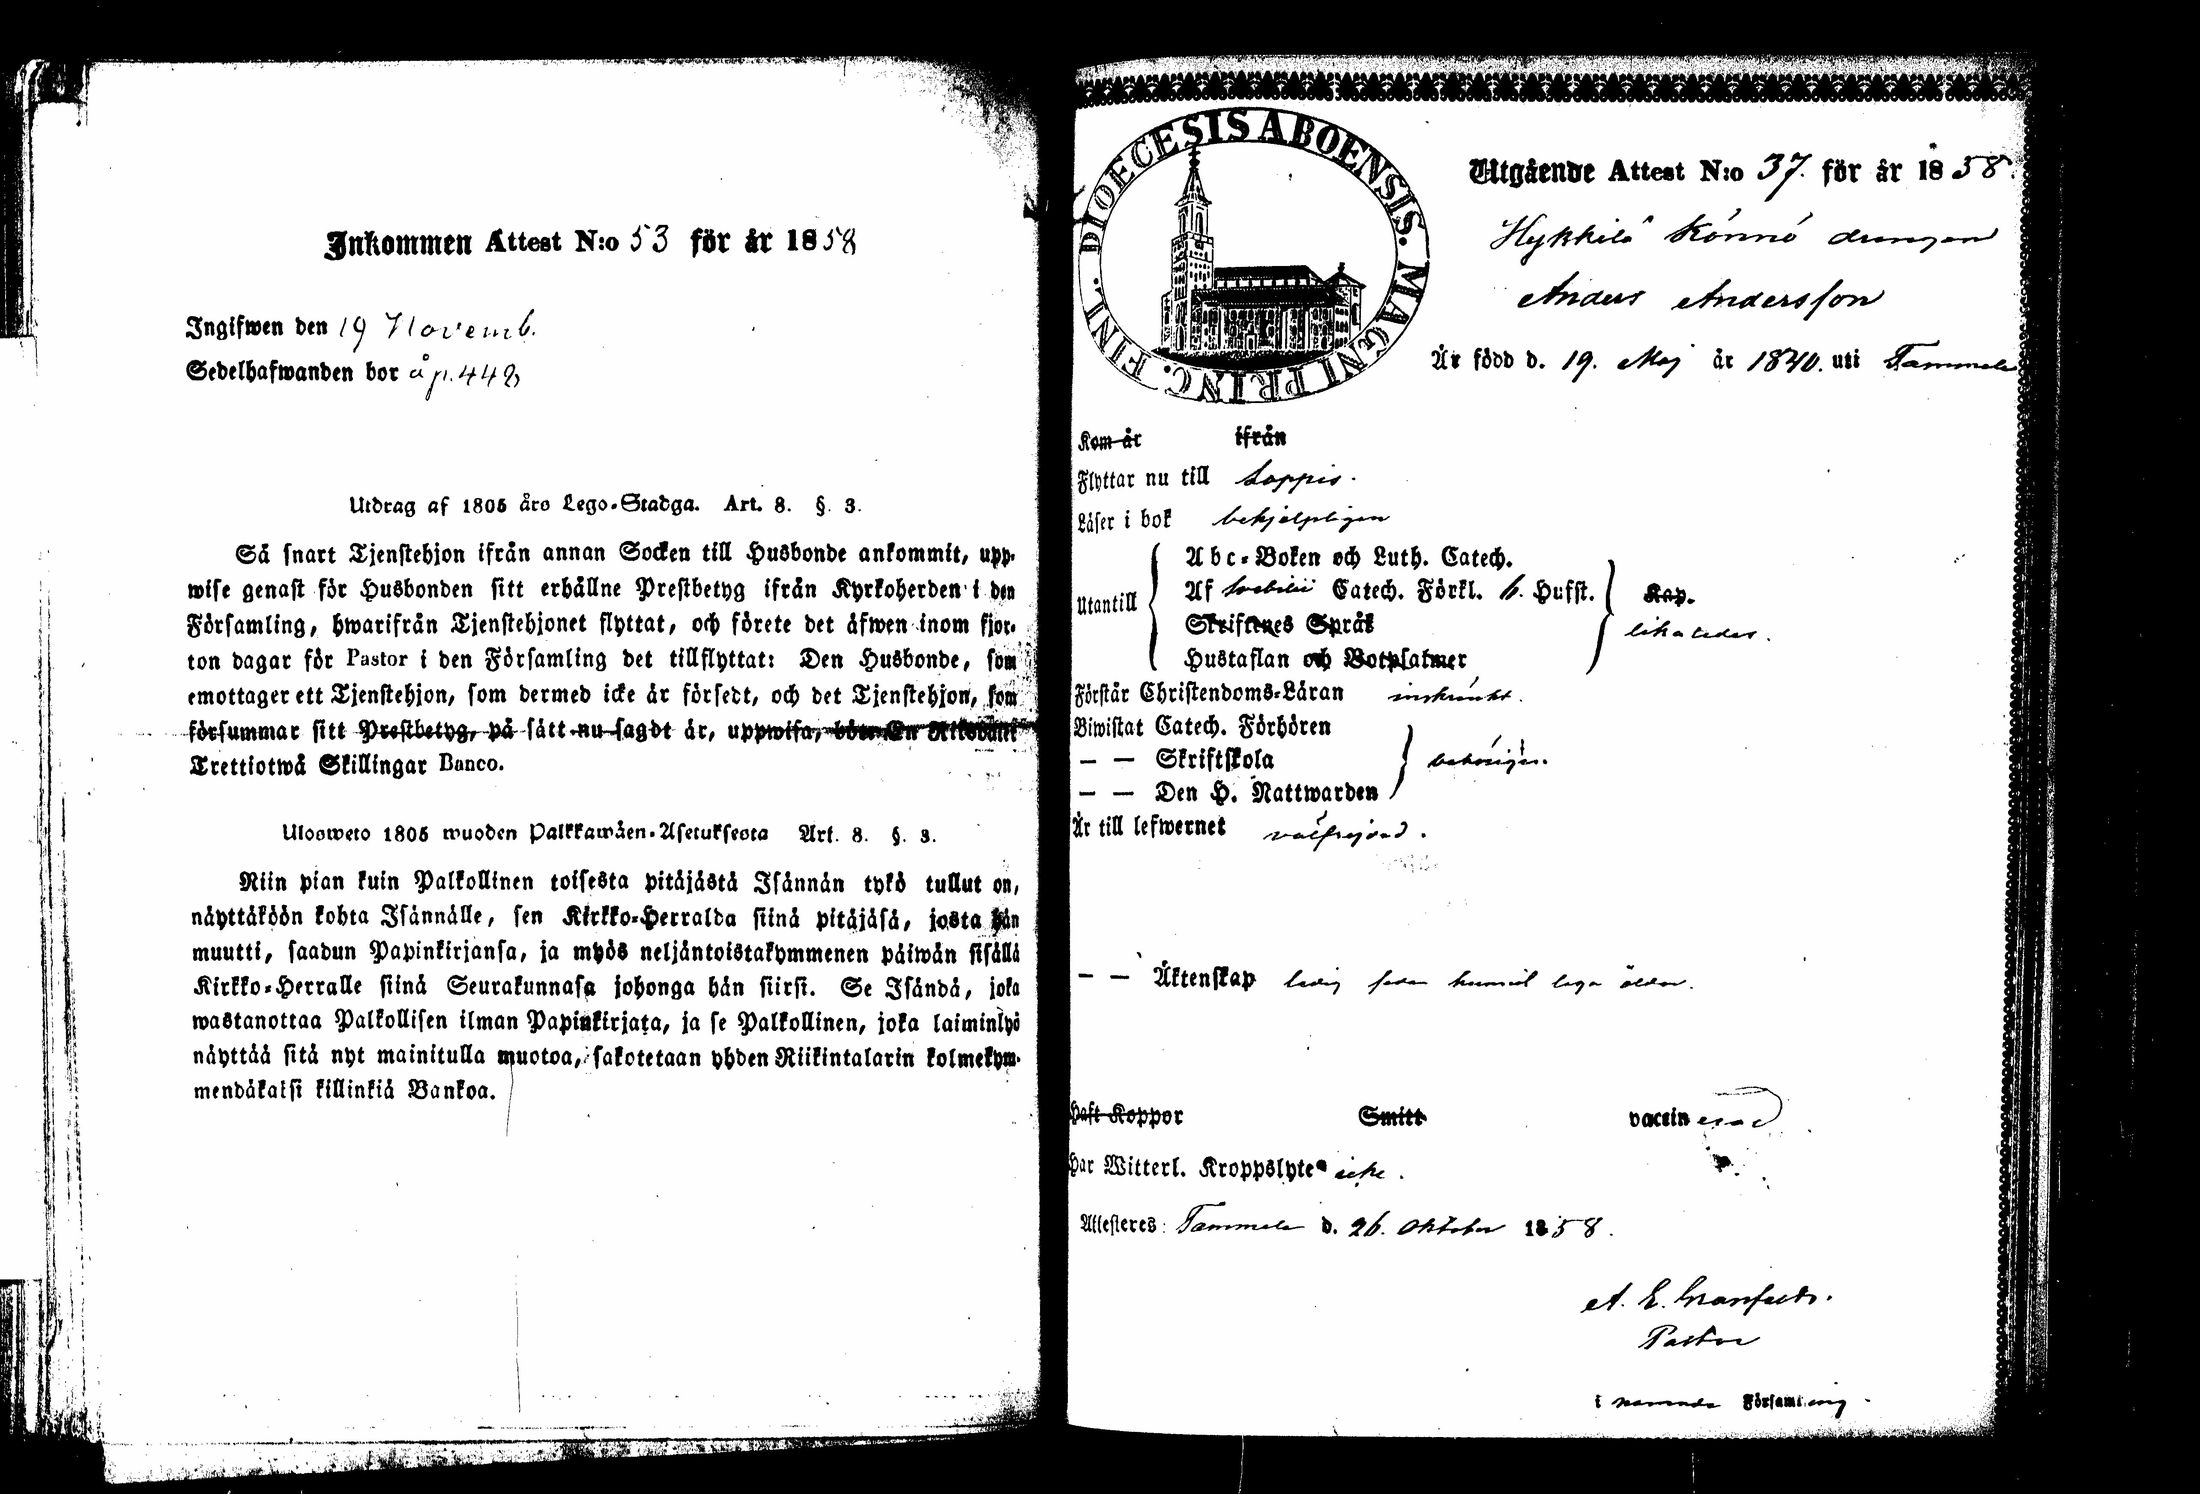 Inkommen Attest N:o 53 för år 1858
Ingifwen den 19 Novemb.
Sedelhafwanden bor å p. 442
Utdrag af 1805 års Lego-Stadga. Art. 8. §. 3.
Så snart Tjenstehjon ifrån annan Socken till Husbonde ankommit, upp-
wise genast för Husbonden sitt erhållne Prestbetyg ifrån Kyrkoherden i den
Församling, hwarifrån Tjenstehjonet flyttat, och förete det äfwen inom fjor-
ton dagar för Pastor i den Församling det tillflyttat: Den Husbonde, som
emottager ett Tjenstehjon, som dermed icke är försedt, och det Tjenstehjon, som
försummar sitt Prestbetyg, på sätt nu sagdt är, uppwisa, böte En Riksdaler
Trettiotwå Skillingar Banco.
Ulosweto 1805 wuoden Palkkawäen-Asetuksesta Art. 8. §. 3.
Niin pian kuin Palkollinen toisesta pitäjästä Isännän tykö tullut on,
näyttäköön kohta Isännälle, sen Kirkko-Herralda siinä pitäjäsä, josta hän
muutti, saadun Papinkirjansa, ja myös neljäntoistakymmenen päiwän sisällä
Kirkko-Herralle siinä Seurakunnasa johonga hän siirsi. Se Isändä, joka
wastanottaa Palkollisen ilman Papinkirjata, ja se Palkollinen, joka laiminlyö
näyttää sitä nyt mainitulla muotoa, sakotetaan yhden Riikintalarin kolmekym-
mendäkaksi killinkiä Bankoa.
DIOECESIS ABOENSIS. MAGNI PRINC. FINL.
Utgående Attest N:o 37. för år 1858.
Hykkilä Könnö drengen
Anders Andersson
Är född d. 19. Maj år 1840. uti Tammela
Kom år ifrån
Flyttar nu till Loppis.
Läser i bok behjelpligen
Utantill
Abc-Boken och Luth. Catech.
Af Svebilii Catech. Förkl. 6. Hufst.
Skriftenes Språk
Hustaflan och Botpsalmer
Kap.
likaledes.
Förstår Christendoms-Läran inskränkt.
Biwistat Catech. Förhören
— — Skriftskola
— — Den H. Nattwarden
behörigen.
Är till lefwernet välfrejdad.
— — Äktenskap ledig sedan hunnit laga ålder.
Haft Koppor Smitt vaccinerad
Har Witterl. Kroppslyte icke.
Attesteres: Tammela d. 26. Oktober 1858.
A. E. Granfelt.
Pastor
i nämnda Församling